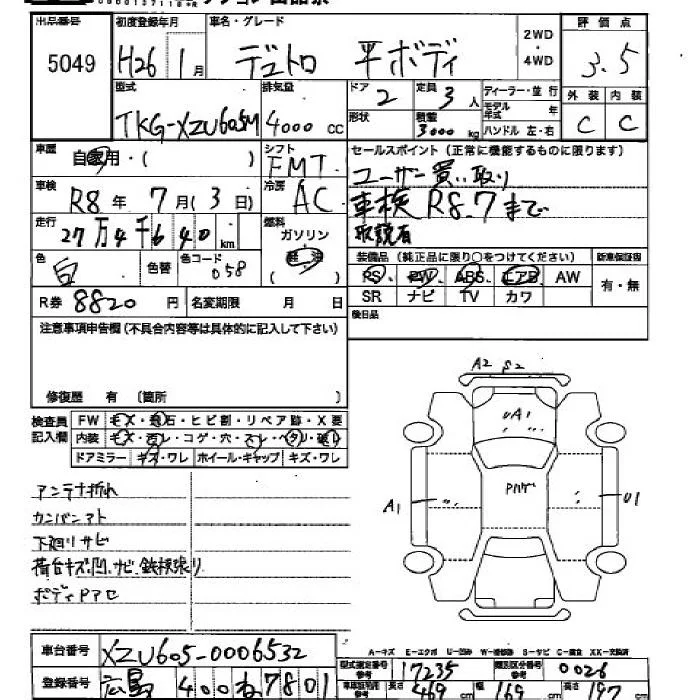 出品番号 初度登録年月 車名・グレード 2WD・4WD 評価点
5049 H26 1月 デュトロ 平ボディ 3.5
型式 排気量 ドア 2 定員 3人 ディーラー・並行 外装 内装
TKG-XZU605M 4000cc 形状 積載 3000kg モデル年式 年 ハンドル 左・右 C C
車歴 自家用・( ) シフト FMT セールスポイント(正常に機能するものに限ります)
車検 R8年 7月(3日) 冷房 AC ユーザー買い取り
車検 R8.7まで
走行 27万4千640km 燃料 ガソリン 軽油 取説有
色 白 色替 色コード 058 装備品(純正品に限り○をつけてください) 新車保証書
PS、PW、ABS、エアB、AW 有・無
R券 8820円 名変期限 月 日 SR ナビ TV カワ
注意事項申告欄(不具合内容等は具体的に記入して下さい) 後日品
修復歴 有 〔箇所 〕
検査員記入欄 FW キズ・飛石・ヒビ割・リペア跡・X要
内装 キズ・汚レ・コゲ・穴・スレ・ヘタリ・破レ
ドアミラー キズ・ワレ ホイール・キャップ キズ・ワレ
A2 S2
UA1
A1
U1
アンテナ折れ
カンバンアト
下廻りサビ
荷台キズ、凹、サビ、鉄板張り
ボディPアセ
車台番号 XZU605-0006532
A-キズ E-エクボ U-凹み W-補修跡 S-サビ C-腐食 XX-交換済
型式指定番号 17235 類別区分番号 0026
登録番号 広島 400 7801
長さ 469cm 幅 169cm 高さ 197cm